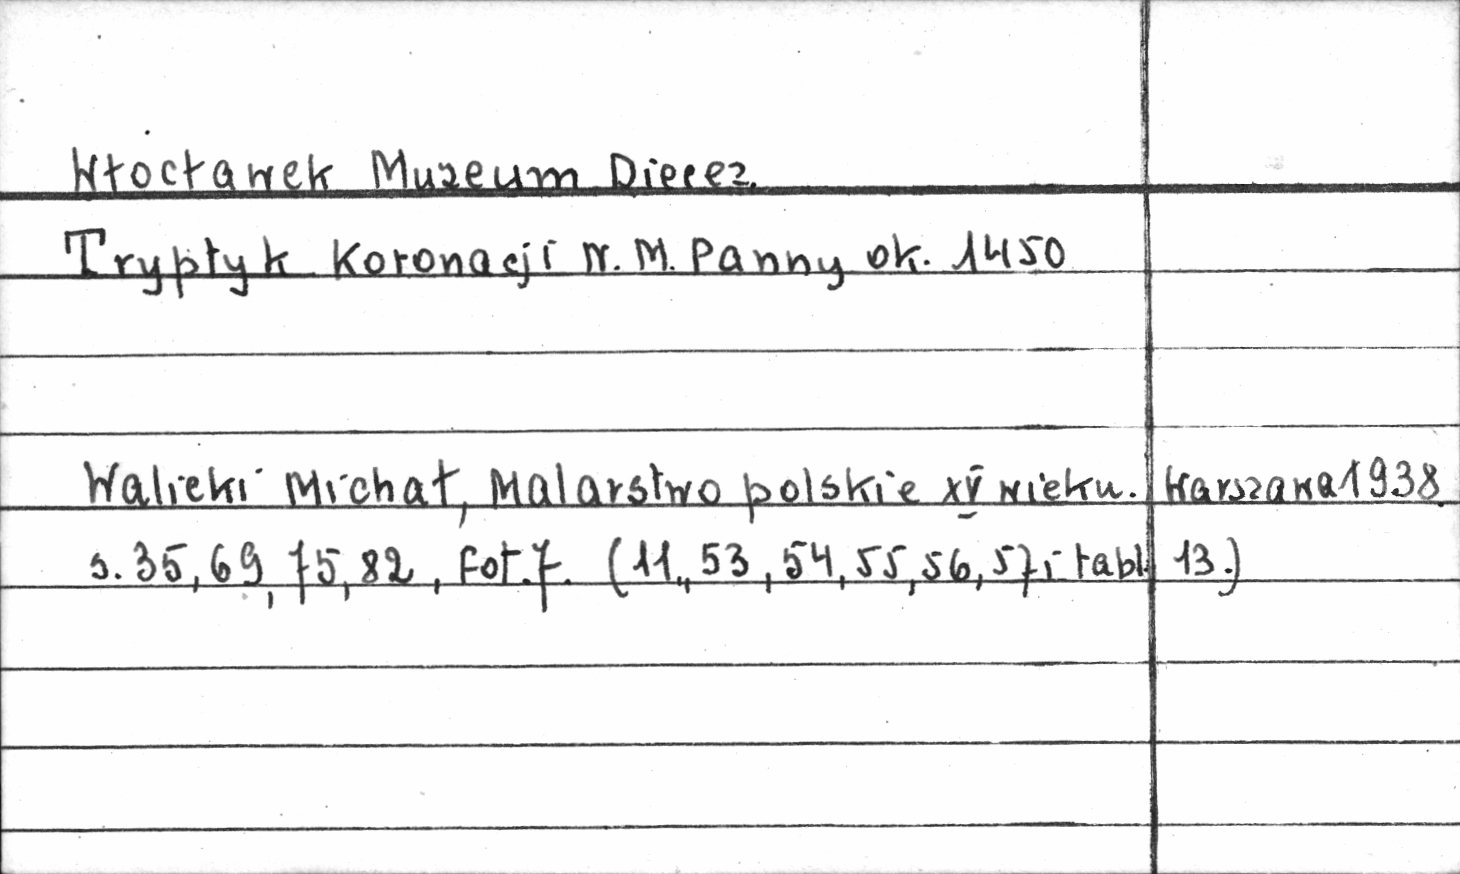 Włocławek Muzeum Diecez.
Tryptyk Koronacji N. M. Panny ok. 1450
Walicki Michał, Malarstwo polskie XV wieku. Warszawa 1938
s. 35, 69, 75, 82, fot. 7. (11, 53, 54, 55, 56, 57 i tabl. 13.)